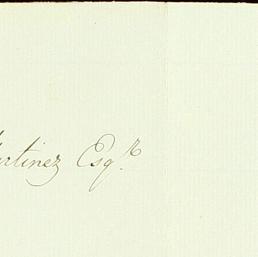 artinez Esqr.